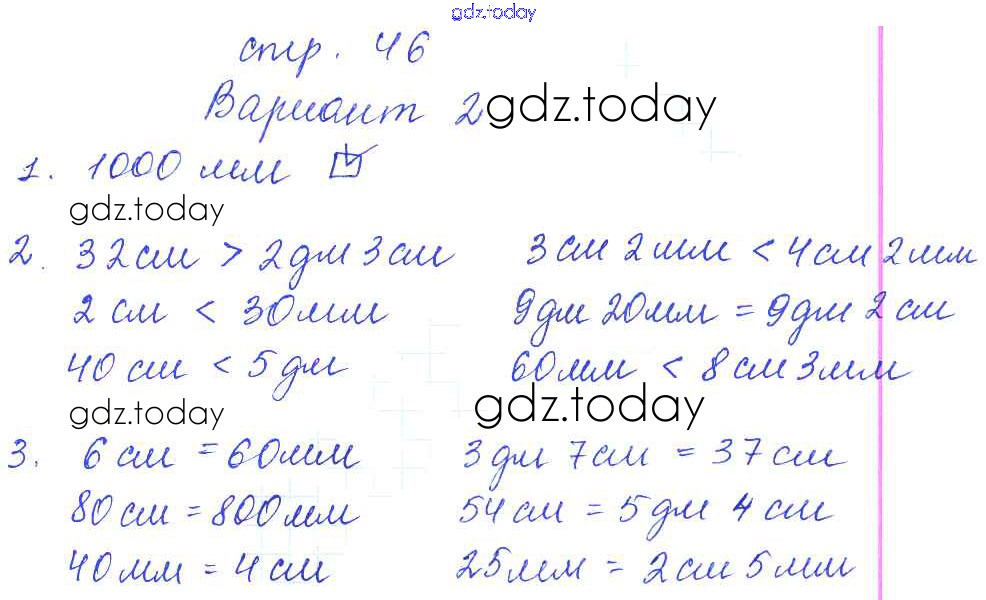 gdz.today
стр. 46
Вариант 2 gdz.today
1. 1000 мм ☑
gdz.today
2. 32 см > 2 дм 3 см 3 см 2 мм < 4 см 2 мм
2 см < 30 мм 9 дм 20 мм = 9 дм 2 см
40 см < 5 дм 60 мм < 8 см 3 мм
gdz.today gdz.today
3. 6 см = 60 мм 3 дм 7 см = 37 см
80 см = 800 мм 54 см = 5 дм 4 см
40 мм = 4 см 25 мм = 2 см 5 мм